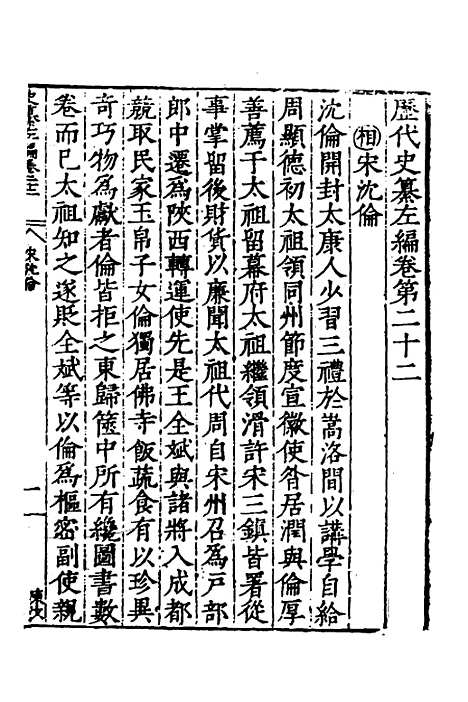 歷代史纂左編卷第二十二
相宋沈倫
沈倫開封太康人少習三禮於嵩洛間以講學自給
周顯德初太祖領同州節度宣徽使昝居潤與倫厚
善薦于太祖留幕府太祖繼領滑許宋三鎮皆署從
事掌留後財貨以廉聞太祖代周自宋州召爲戶部
郎中遷爲陜西轉運使先是王全斌與諸將入成都
競取民家玉帛子女倫獨居佛寺飯蔬食有以珍異
奇巧物爲獻者倫皆拒之東歸篋中所有纔圖書數
卷而已太祖知之遂貶全斌等以倫爲樞密副使親
宋沈倫
一